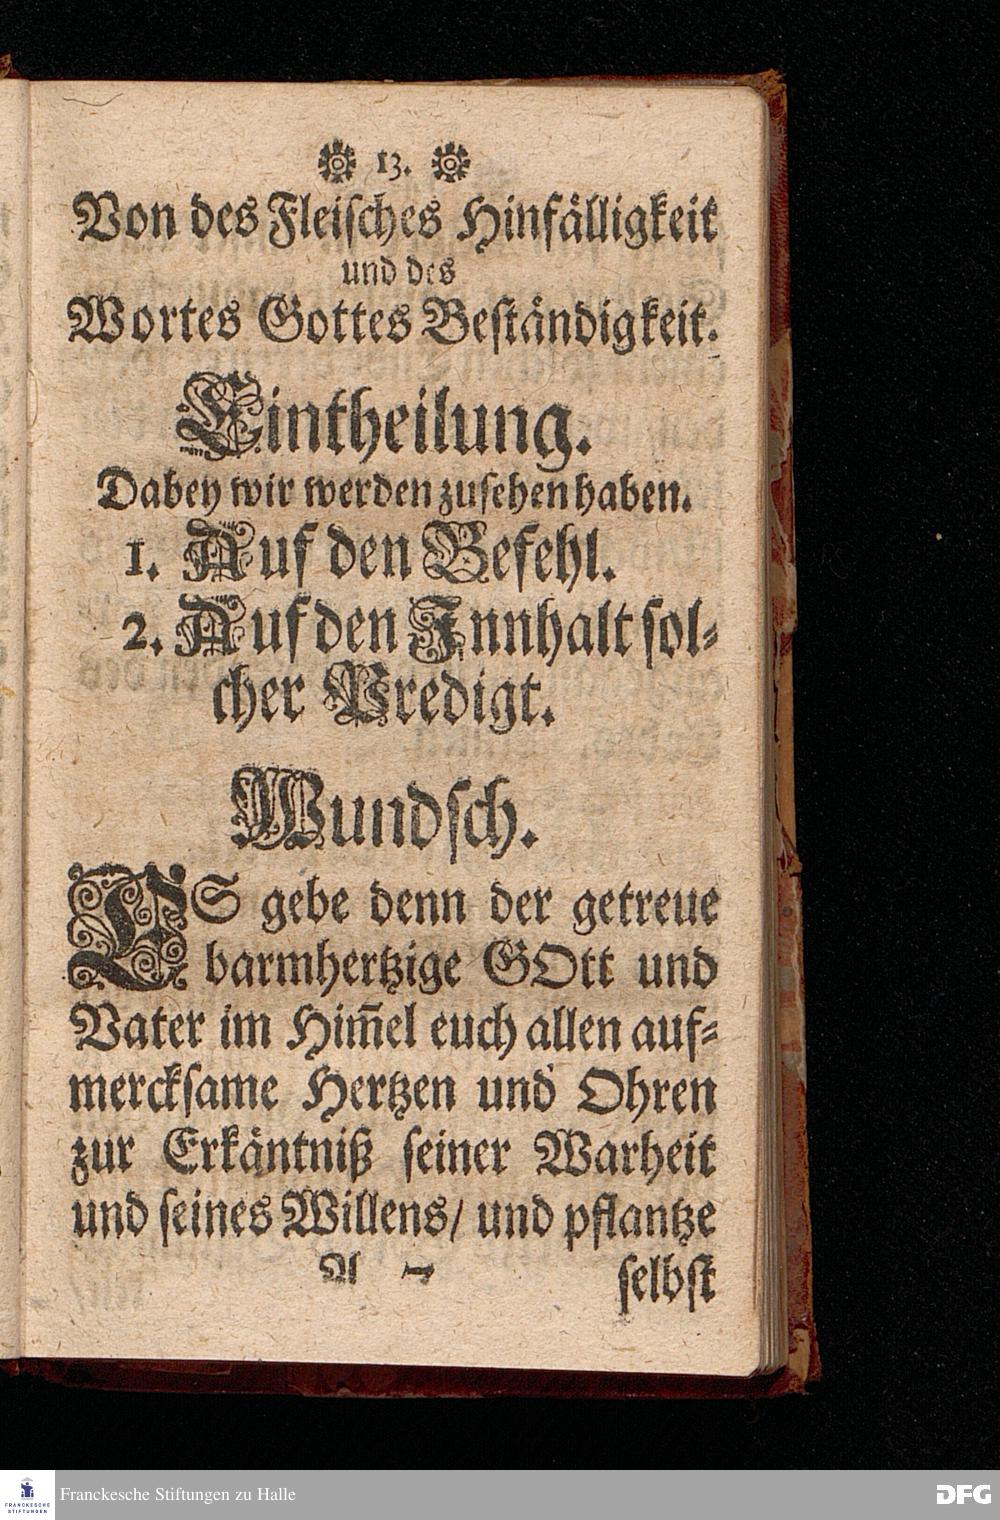 13.
Von des Fleisches Hinfälligkeit
und des
Wortes Gottes Beständigkeit.
Eintheilung.
Dabey wir werden zusehen haben.
1. Auf den Befehl.
2. Auf den Innhalt sol-
cher Predigt.
Wundsch.
ES gebe denn der getreue
barmhertzige GOtt und
Vater im Him̄el euch allen auf-
mercksame Hertzen und Ohren
zur Erkäntniß seiner Warheit
und seines Willens/ und pflantze
A
selbst
FRANCKESCHE
STIFTUNGEN
Franckesche Stiftungen zu Halle
DFG